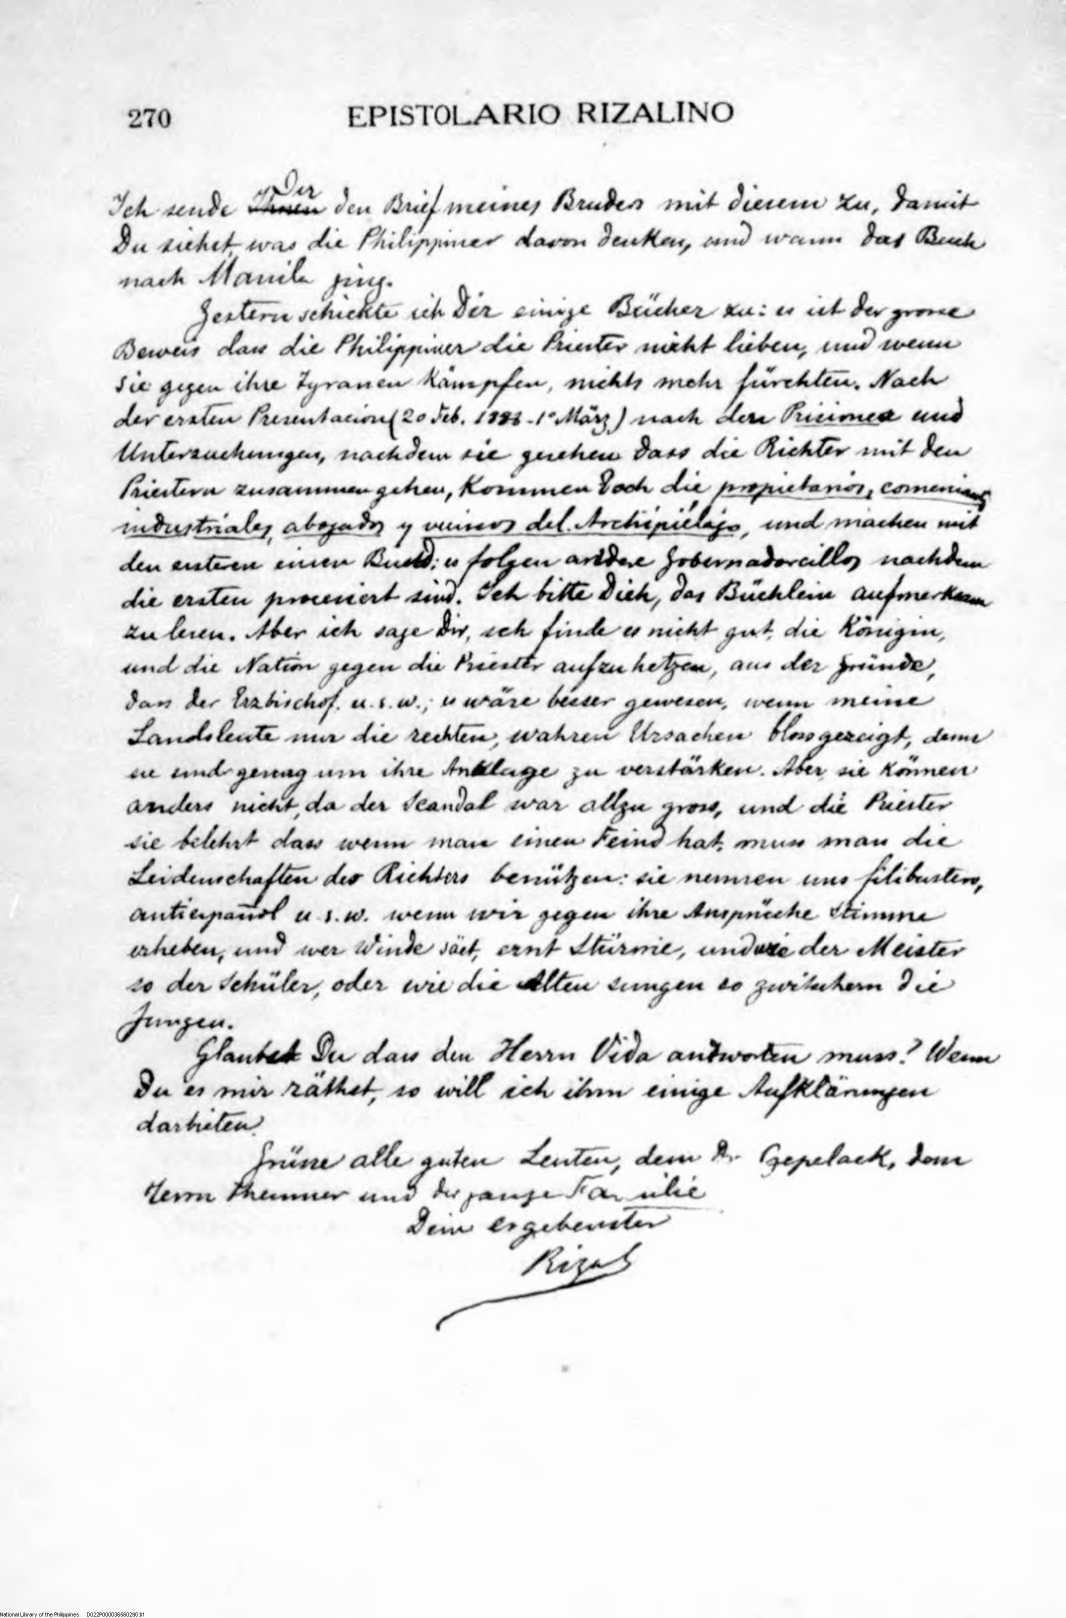 270 EPISTOLARIO RIZALINO
Ich sende Ihnen Dir den Brief meines Bruders mit diesem zu, damit
Du siehst, was die Philippiner davon denken, und wann das Buch
nach Manila ging.
Gestern schickte ich Dir einige Bücher zu: es ist der grosse
Beweis dass die Philippiner die Priester nicht lieben, und wenn
sie gegen ihre Tyranen kämpfen, nichts mehr fürchten. Nach
der ersten Presentacion (20 Feb. 1888 - 1º März) nach den Prisiones und
Untersuchungen, nachdem sie gesehen dass die Richter mit den
Priestern zusammen gehen, kommen doch die propietarios, comerciantes
industriales, abogados y vecinos del Archipiélago, und machen mit
den ersteren einen Bund; es folgen andere Gobernadorcillos nachdem
die ersten processiert sind. Ich bitte Dich, das Büchlein aufmerksam
zu lesen. Aber ich sage Dir, ich finde es nicht gut, die Königin,
und die Nation gegen die Priester aufzuhetzen, aus der Gründe,
dass der Erzbischof. u.s.w.; es wäre besser gewesen, wenn meine
Landsleute nur die rechten, wahren Ursachen blossgezeigt, denn
sie sind genug um ihre Anklage zu verstärken. Aber sie können
anders nicht, da der Scandal war allzu gross, und die Priester
sie belehrt dass wenn man einen Feind hat, muss man die
Leidenschaften des Richters benützen: sie nennen uns filibusteros,
antiespañol u.s.w. wenn wir gegen ihre Ansprüche Stimme
erheben, und wer Winde säet, ernt Stürme, und wie der Meister
so der Schüler, oder wie die Alten sungen so zwitschern die
Jungen.
Glaubst Du dass den Herrn Vida antworten muss? Wenn
Du es mir räthst, so will ich ihm einige Aufklärungen
darbieten.
Grüsse alle guten Leuten, dem Dr. Czepelack, dem
Herrn und die ganze Familie
Dein ergebenster
Rizal
National Library of the Philippines